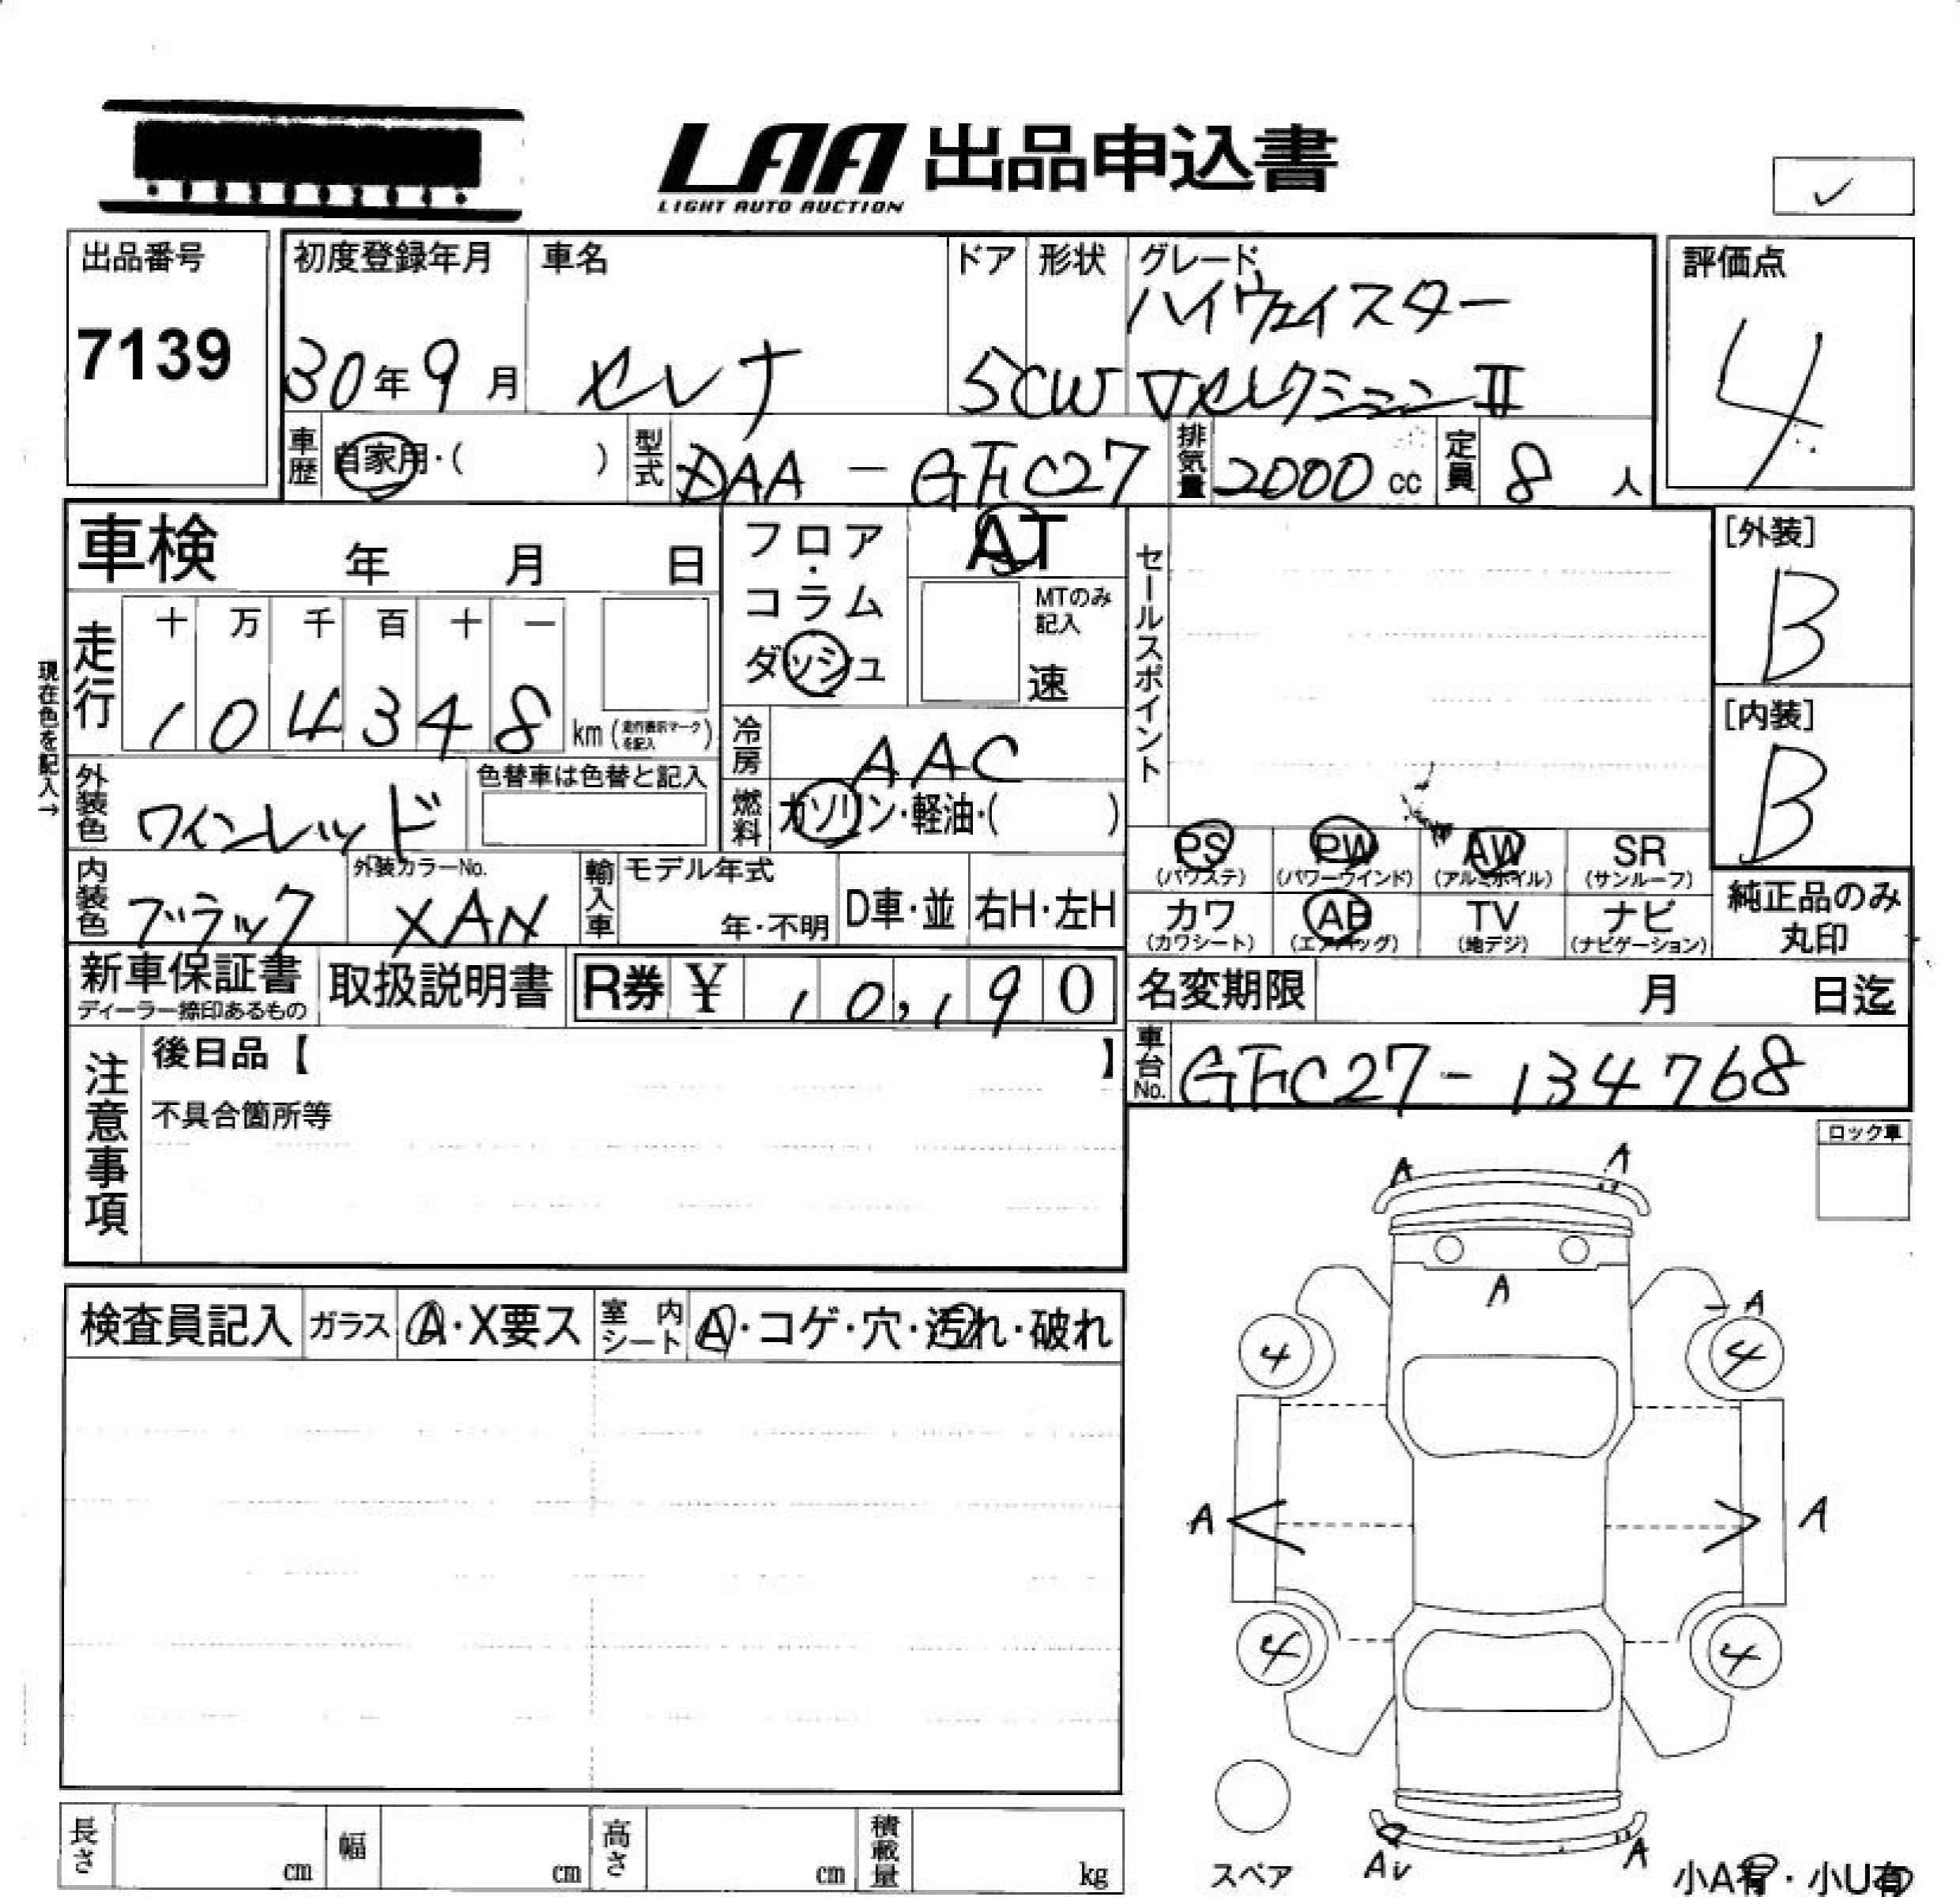 LAA 出品申込書
LIGHT AUTO AUCTION
出品番号
7139
初度登録年月
30年9月
車名
セレナ
ドア
5
形状
CW
グレード
ハイウェイスター
VセレクションⅡ
評価点
4
車歴 自家用・( )
型式 DAA-GFC27
排気量 2000 cc
定員 8 人
車検 年 月 日
フロア・コラム
ダッシュ
AT
MTのみ記入
速
セールスポイント
[外装]
B
[内装]
B
現在色を記入→
走行
十 万 千 百 十 一
1 0 4 3 4 8 km (走行表示マークを記入)
冷房 AAC
燃料 ガソリン・軽油・( )
外装色 ワインレッド
色替車は色替と記入
内装色 ブラック
外装カラーNo.
XAN
輸入車
モデル年式
年・不明
D車・並
右H・左H
PS (パワステ)
PW (パワーウインド)
AW (アルミホイル)
SR (サンルーフ)
カワ (カワシート)
AB (エアバッグ)
TV (地デジ)
ナビ (ナビゲーション)
純正品のみ
丸印
新車保証書
ディーラー捺印あるもの
取扱説明書
R券 ¥ 10,190
名変期限 月 日迄
車台No. GFC27-134768
注意事項
後日品【 】
不具合箇所等
ロック車
検査員記入
ガラス A・X要ス
室内シート A・コゲ・穴・汚れ・破れ
A A
A
A
4 4
A A
4 4
スペア
AU A
小A有・小U有
長さ cm
幅 cm
高さ cm
積載量 kg